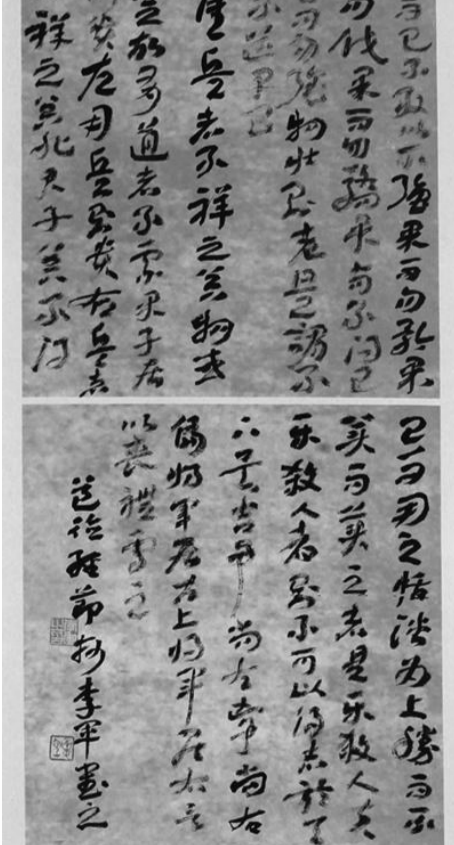 而已不敢以取強果而勿矜果
勿伐果而勿驕果而不得已
而勿強物壯則老是謂不
不道早已
佳兵者不祥之器物或
之故有道者不處君子居
則貴左用兵則貴右兵者
祥之器非君子器不得
已而用之恬淡為上勝而不
美而美之者是樂殺人夫
樂殺人者則不可以得志於天
下矣吉事尚左凶事尚右
偏將軍居左上將軍居右言
以喪禮處之
道德經節抄李軍書之